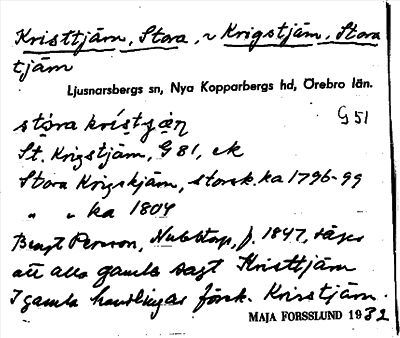 Kristtjärn, Stora, ~ Krigstjärn, Stora
tjärn
Ljusnarsbergs sn, Nya Kopparbergs hd, Örebro län.
stóra krístjän̨ G 51
St. Krigstjärn, G 81, ek
Stora Krigskjärn, storsk.ka 1796-99
" " ka 1804
Bengt Persson, f. 1847, säger
att alla gamla sagt Kristtjärn
I gamla handlingar försk. Krisstjärn.
MAJA FORSSLUND 1932